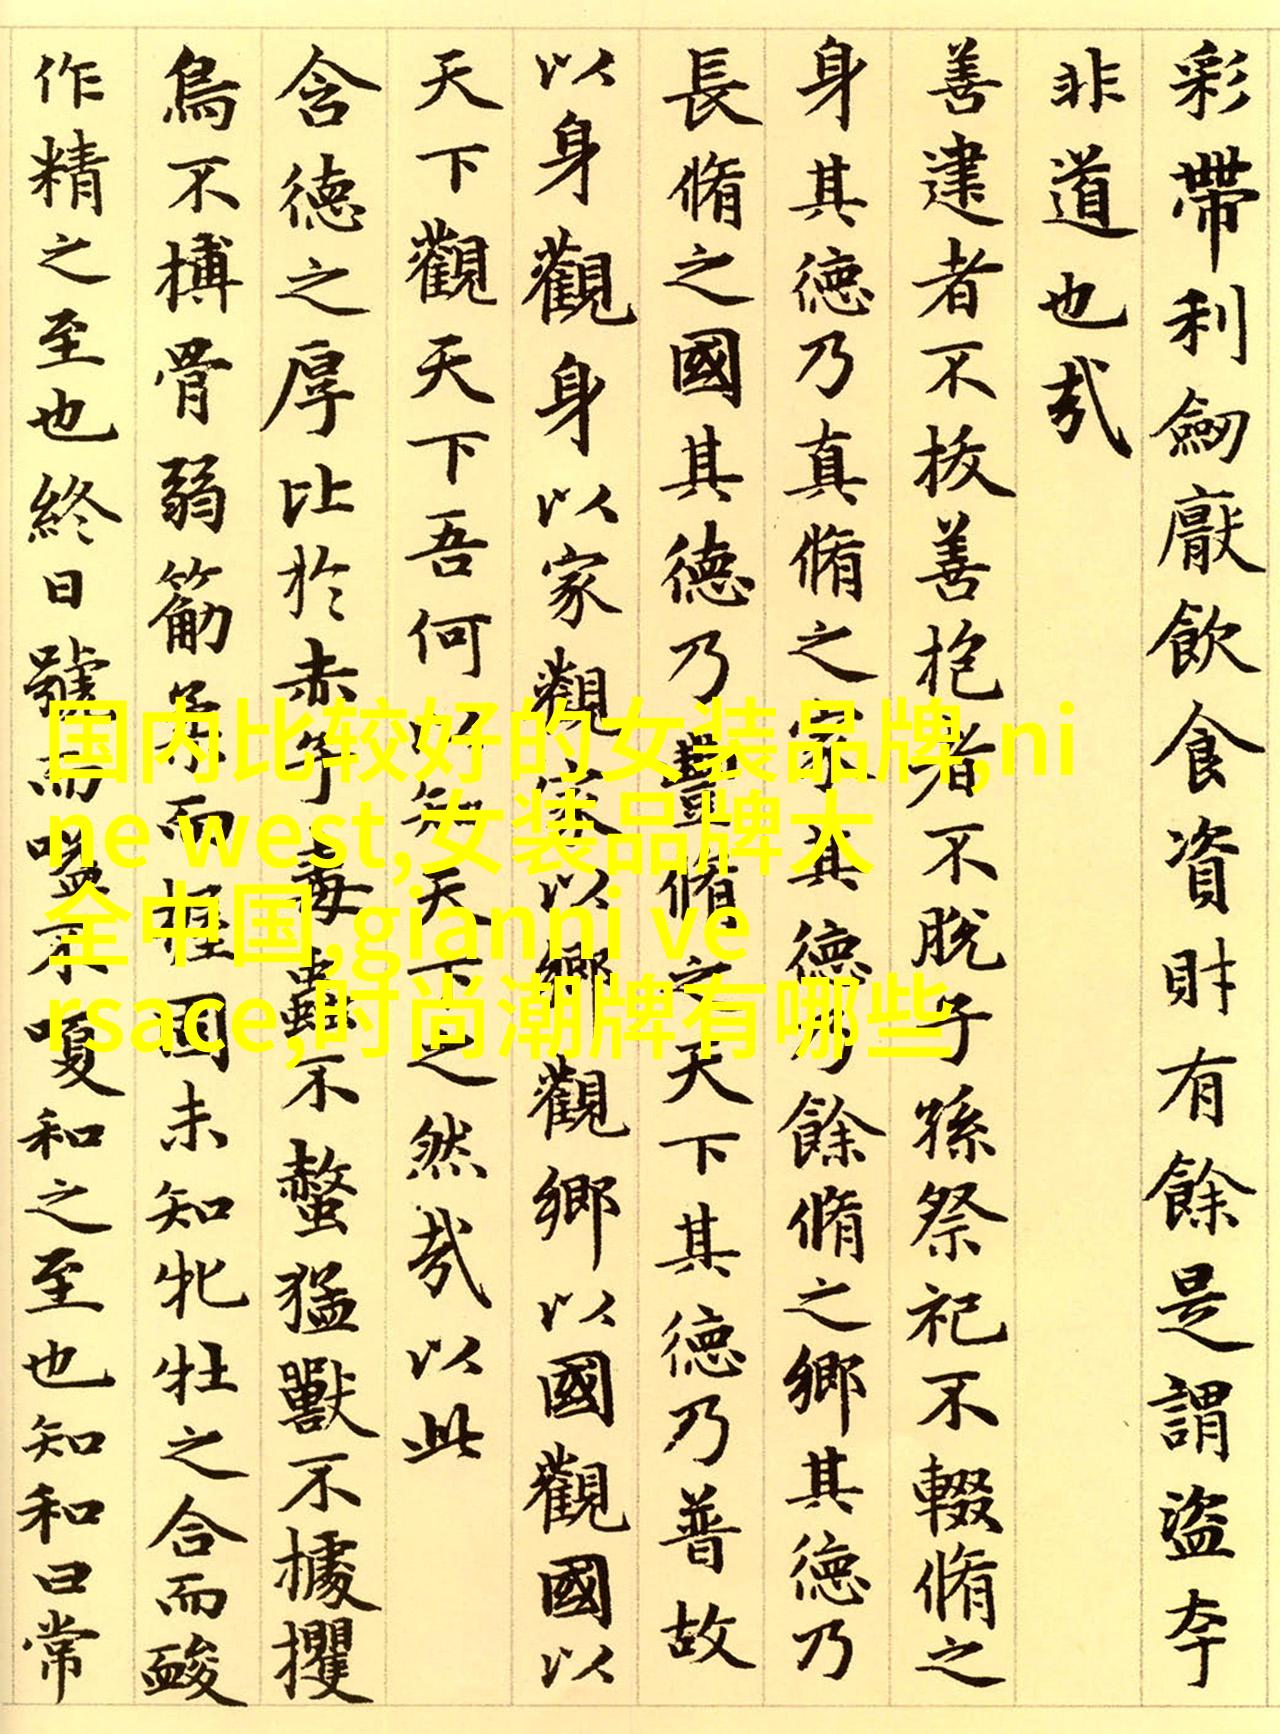 彩帶利劒厭飲食資財有餘是謂盜夸
非道也哉
善建者不拔善抱者不脫子孫祭祀不輟脩之
身其德乃真脩之家其德乃餘脩之鄉其德乃
長脩之國其德乃豐脩之天下其德乃普故
以身觀身以家觀家以鄉觀鄉以國觀國以
天下觀天下吾何以知天下之然哉以此
含德之厚比於赤子毒蟲不螫猛獸不據攫
鳥不搏骨弱筋柔而握固未知牝牡之合而䘒
作精之至也終日號而嗌不嗄和之至也知和曰常
国内比较好的女装品牌,ni
ne west,女装品牌大
全中国,gianni ve
rsace,时尚潮牌有哪些